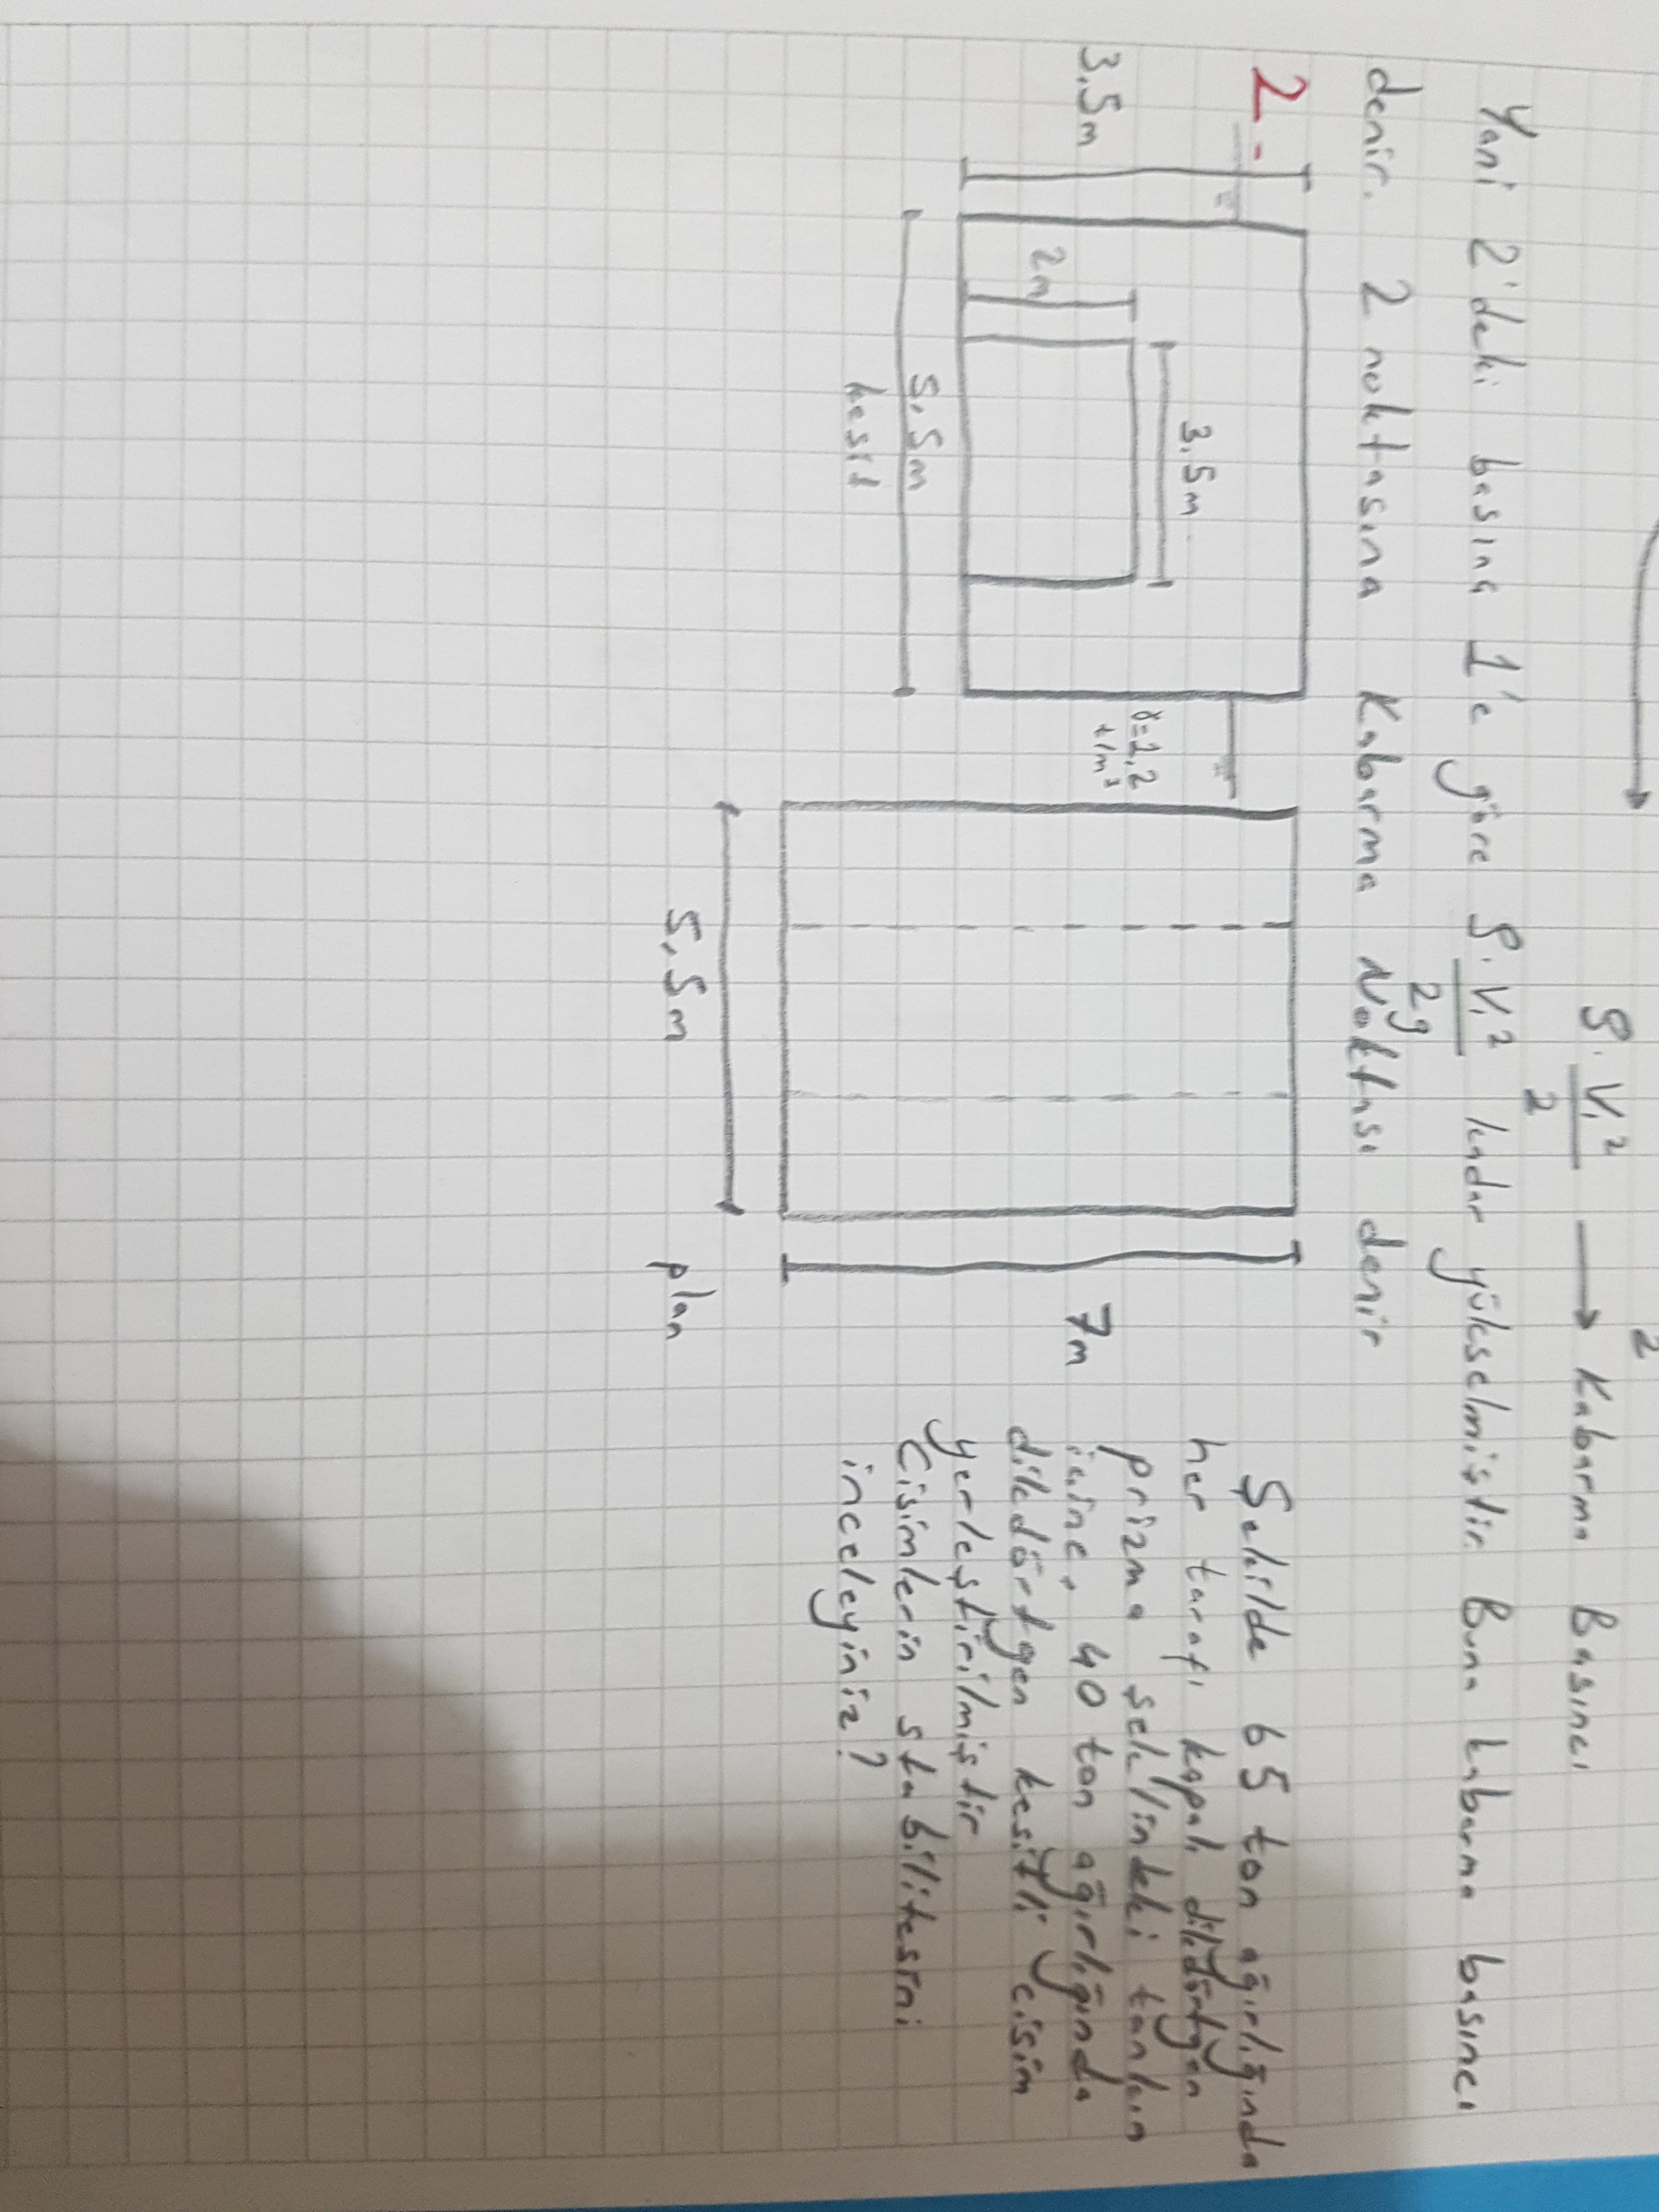 2
ρ. V₁² / 2 → Kabarma Basıncı
Yani 2'deki basınç 1'e göre ρ. V₁² / 2g kadar yükselmiştir. Buna kabarma basıncı
denir. 2 noktasına Kabarma Noktası denir
2-
3,5m
2m
3,5m
5,5m
kesit
γ=1,2
t/m³
5,5m
7m
plan
Şekilde 65 ton ağırlığında
her tarafı kapalı dikdörtgen
prizma şeklindeki tankın
içine, 40 ton ağırlığında
dikdörtgen kesitli cisim
yerleştirilmiştir
Cisimlerin stabilitesini
inceleyiniz?